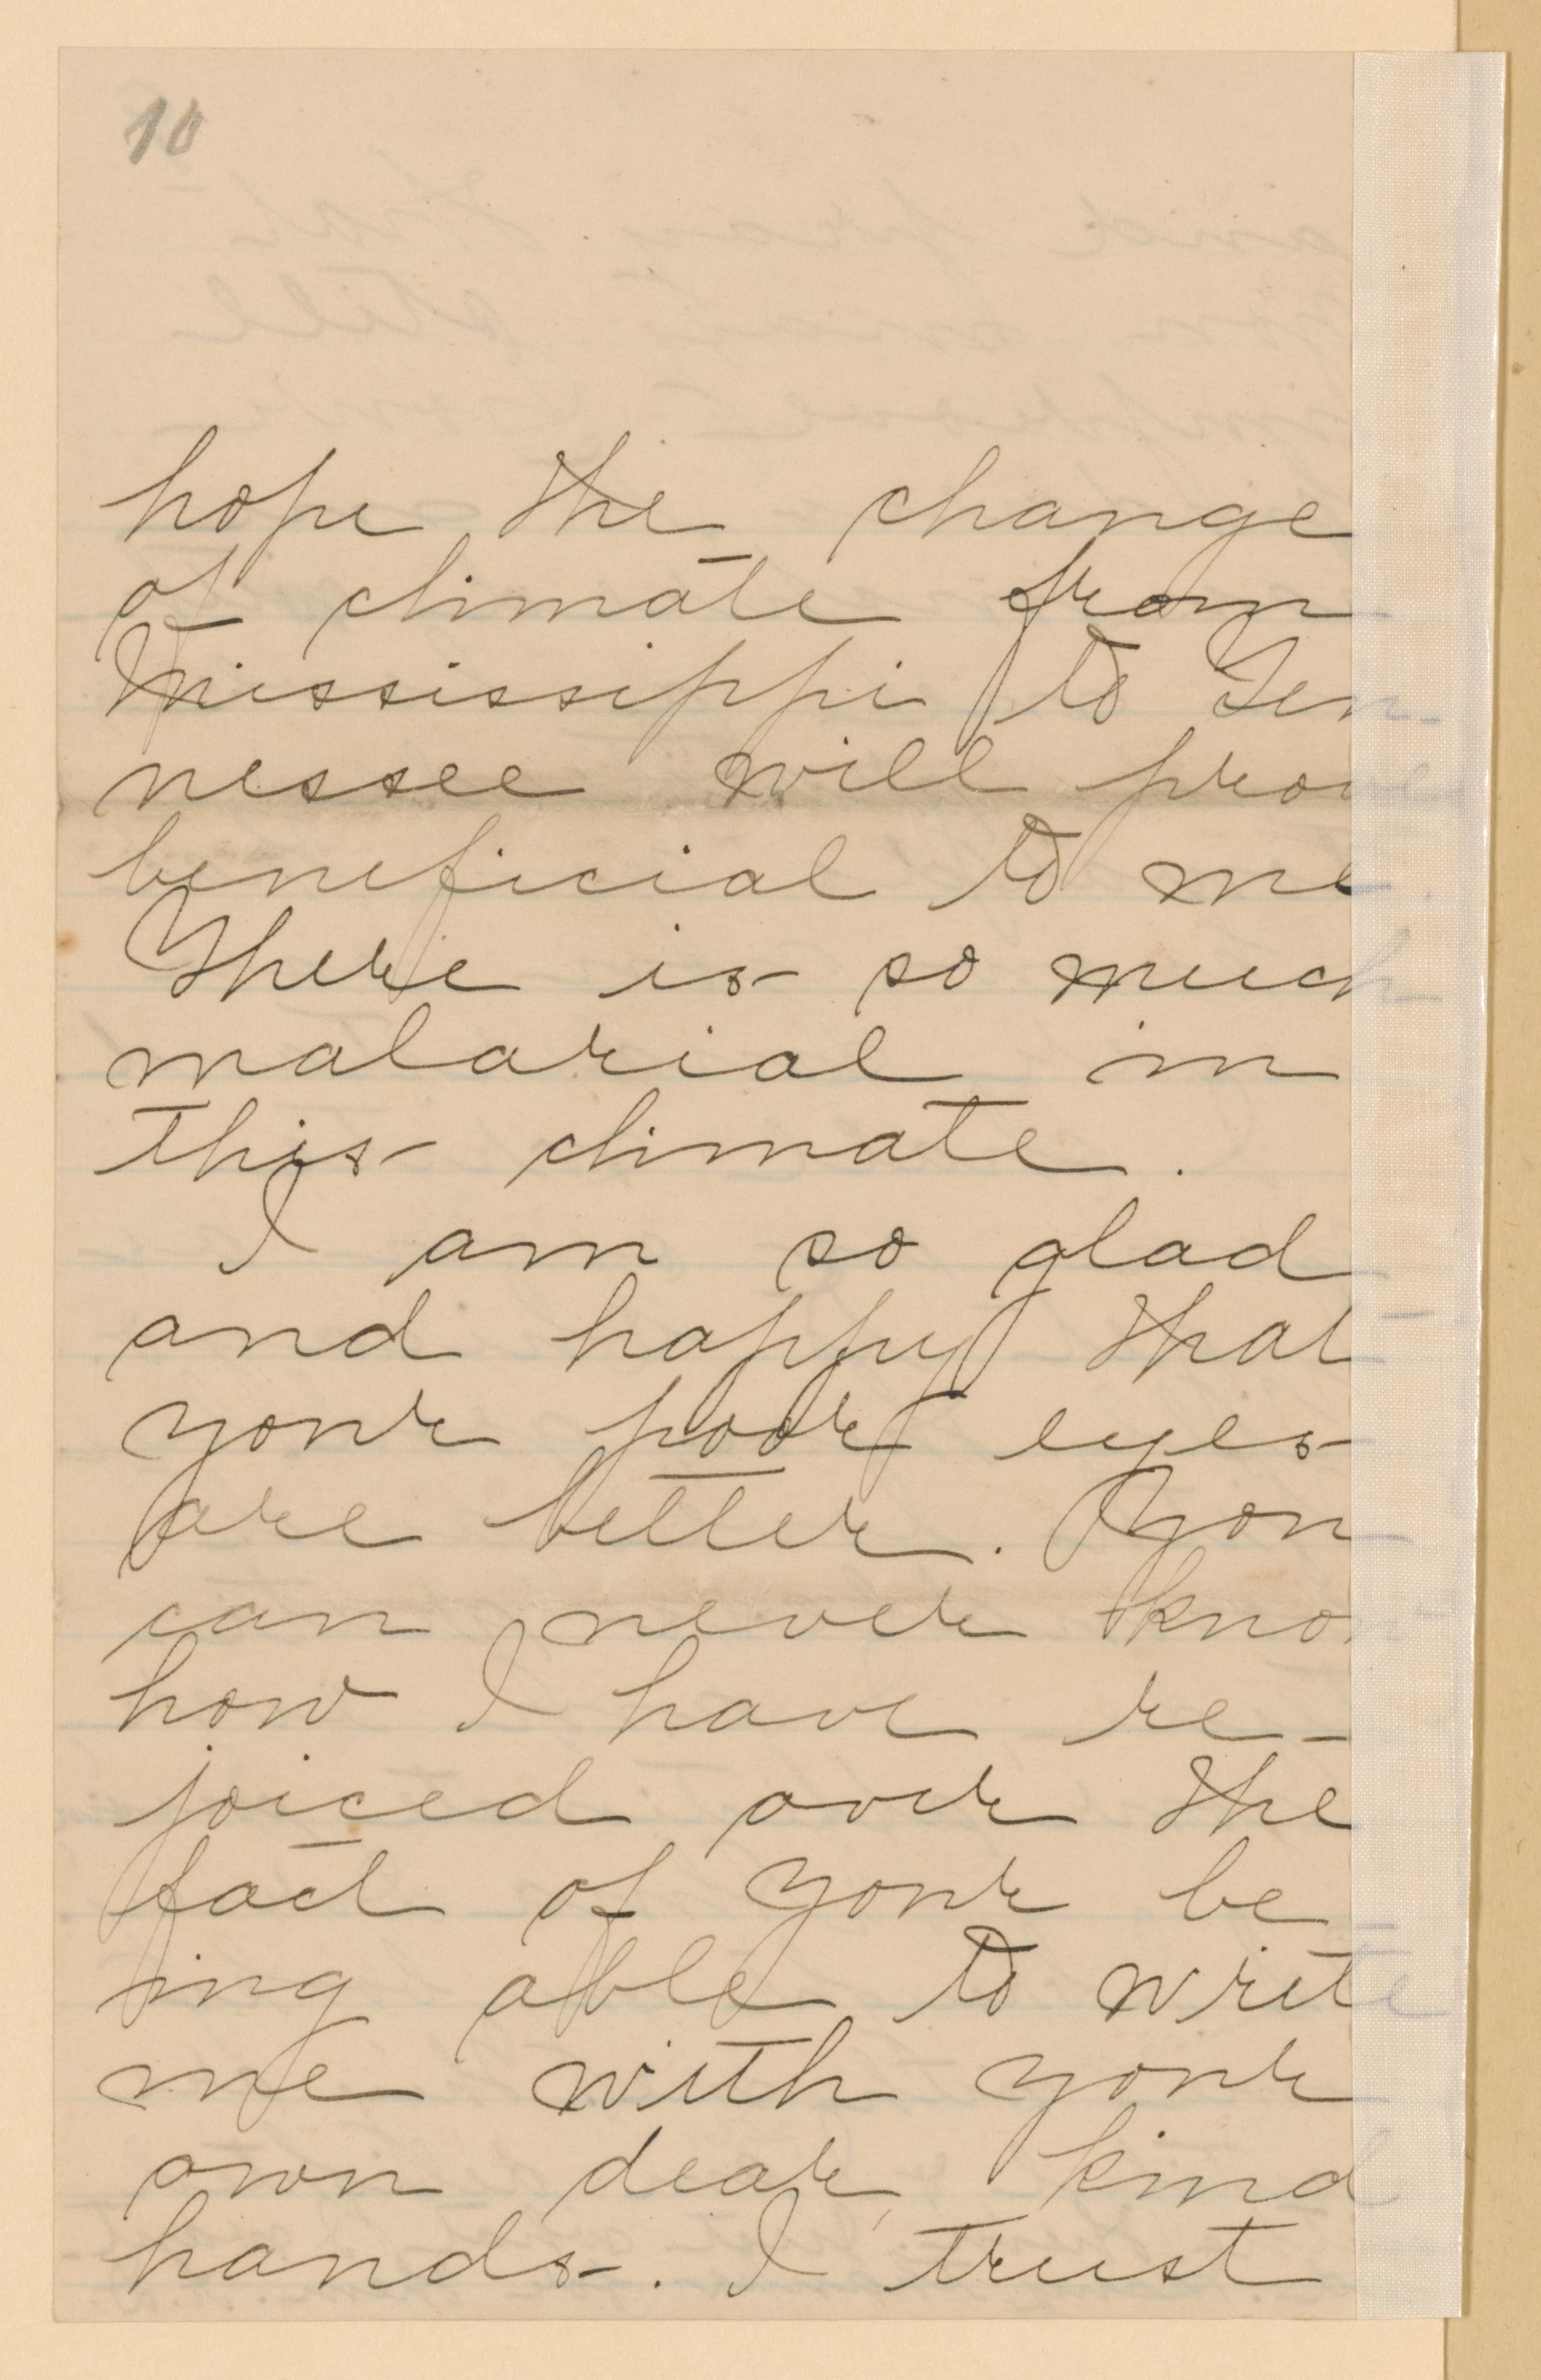 10
hope the change
of climate from
Mississippi to Ten-
nessee will prove
beneficial to me.
There is so much
malarial in
this climate.
I am so glad
and happy that
your poor eyes
are better. You
can never know
how I have re-
joiced over the
fact of your be
ing able to write
me with your
own dear, kind
hands. I trust